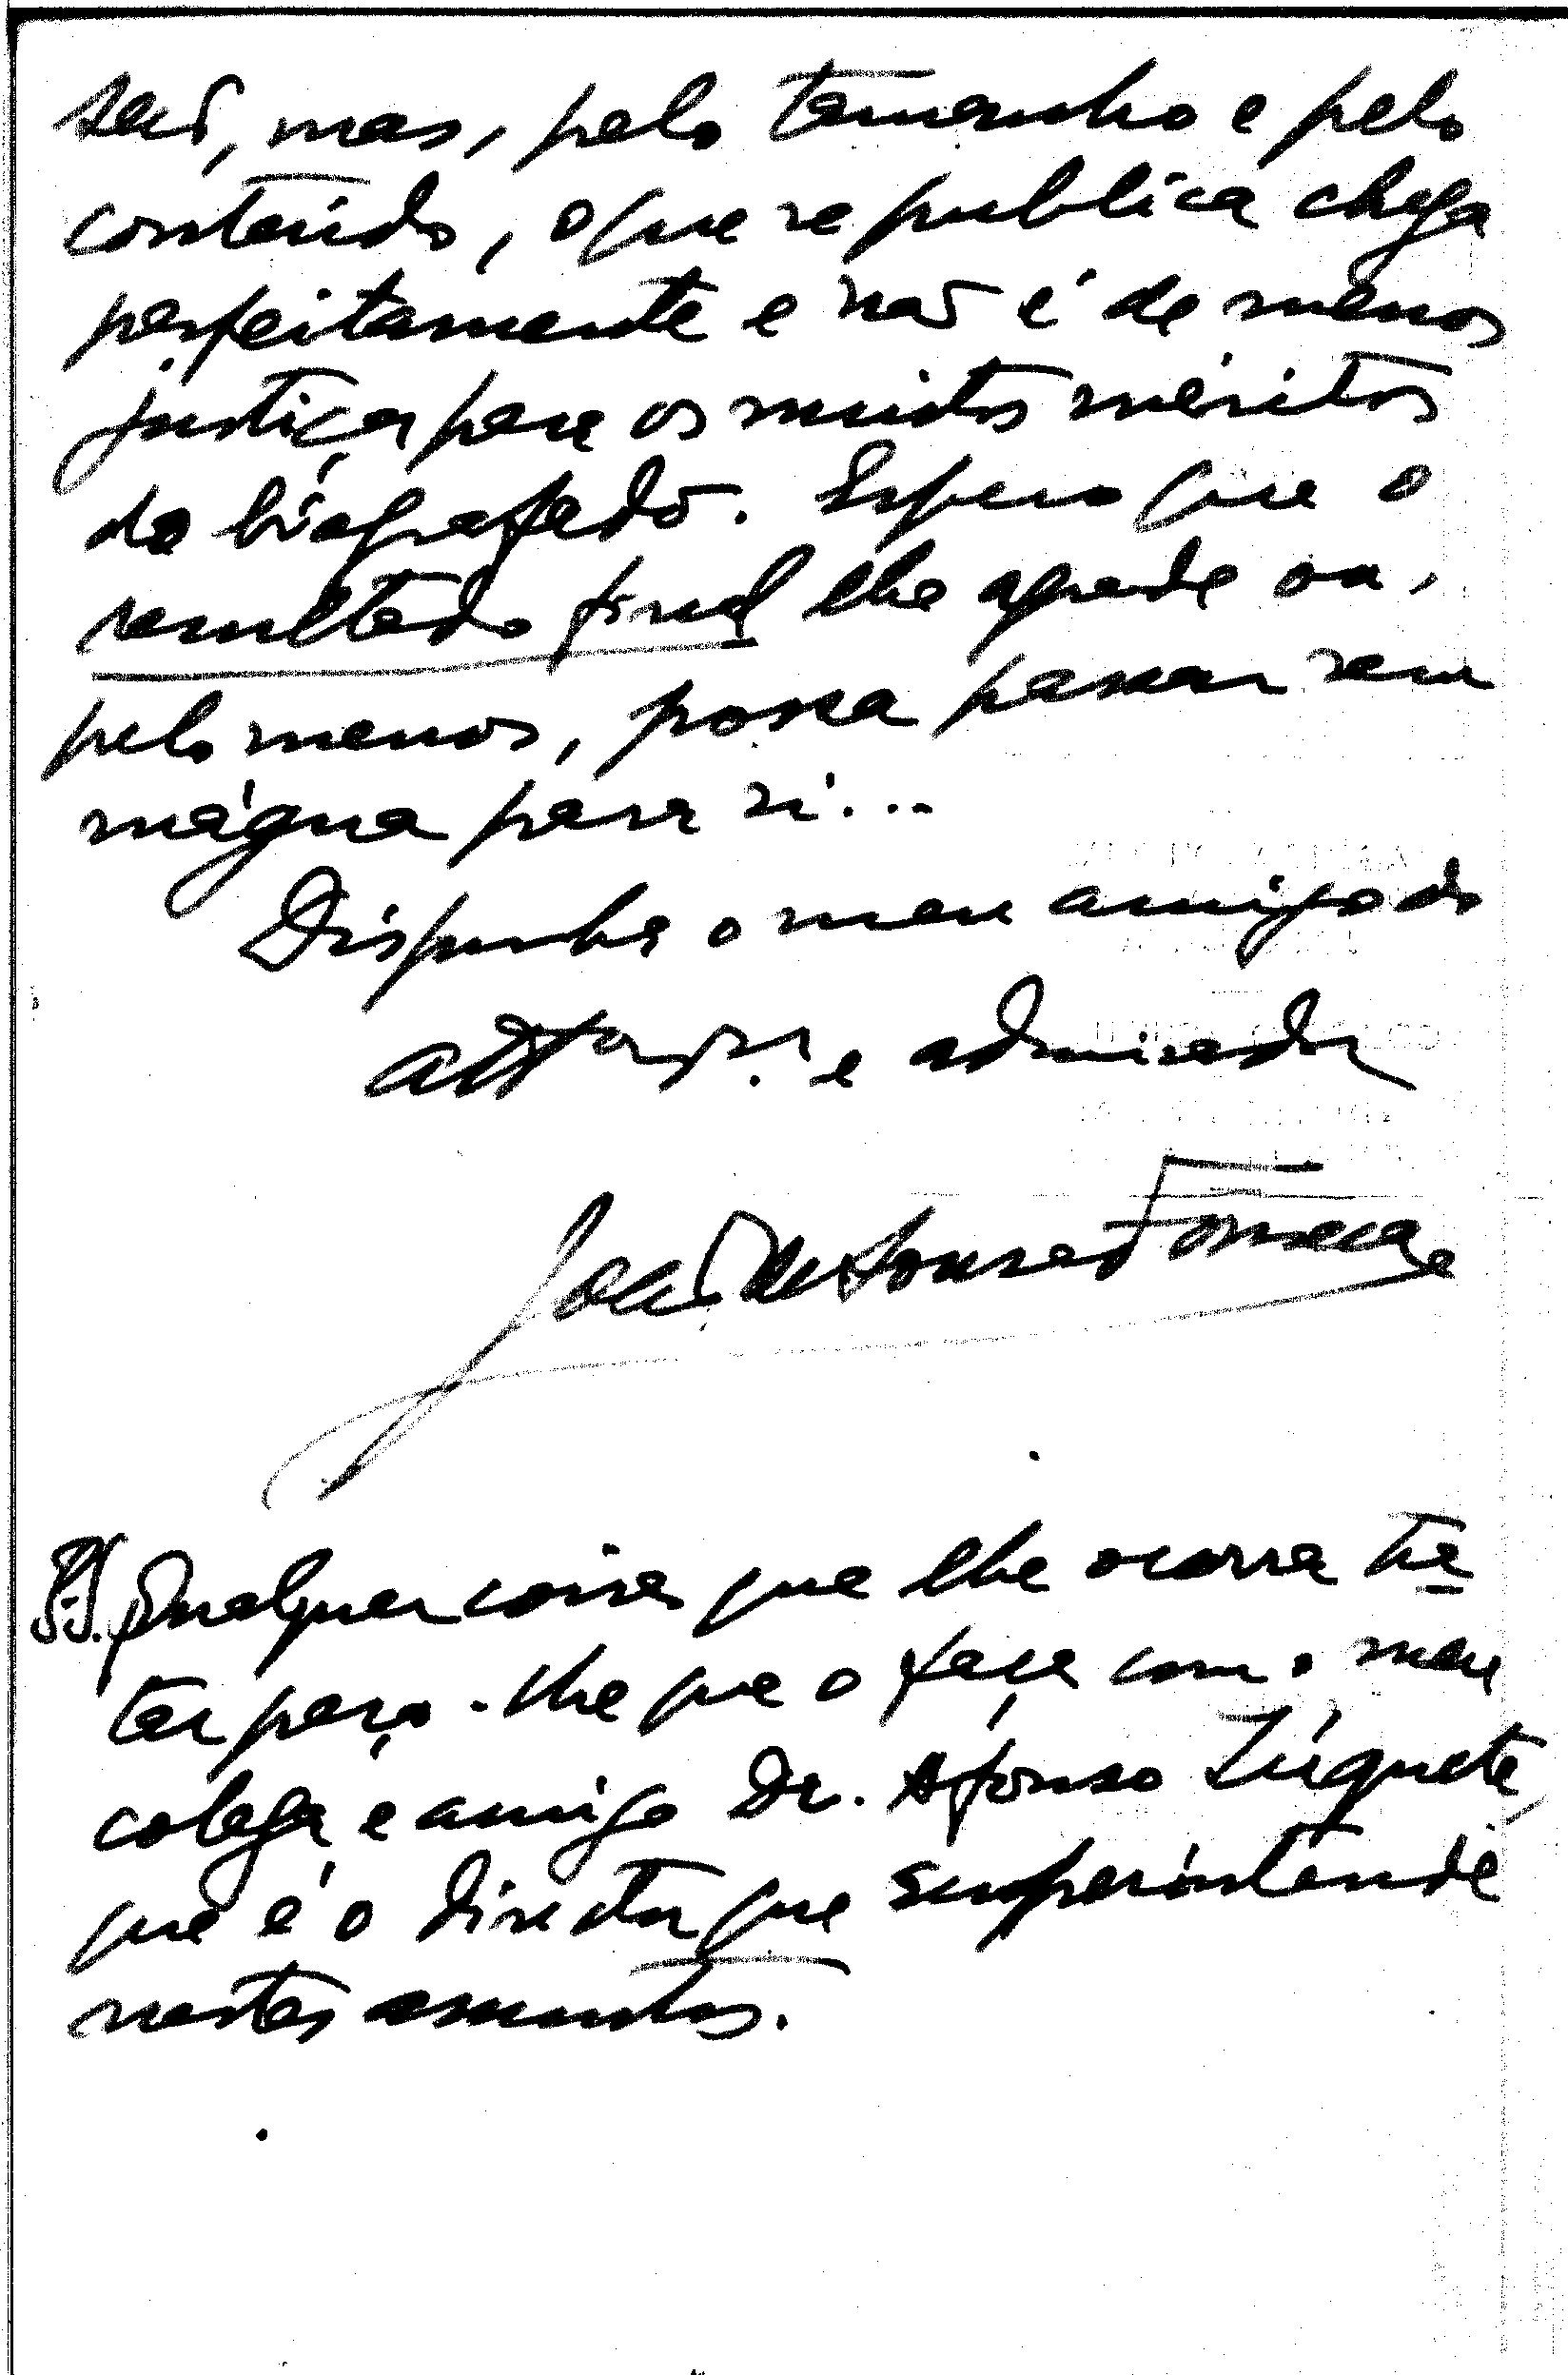 mas, pelo tamanho e pelo
conteúdo, o que se publica chega
perfeitamente e não é de menos
justiça para os muitos méritos
do biografado. Espero que o
resultado final lhe agrade ou,
pelo menos, possa passar sem
mágua para si...
Disponha o meu amigo do
e admirador
João de Sousa Fonseca
P.S. Qualquer coisa que lhe ocorra tra
tar peço-lhe que o faça com o meu
colega e amigo Dr. Afonso Zúquete,
que é o director que superintende
nestes assuntos.